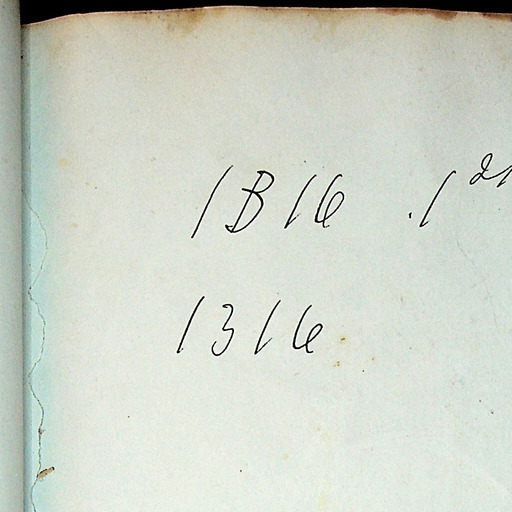 1B16 .1²¹
1316